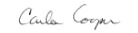 Carla Cooper